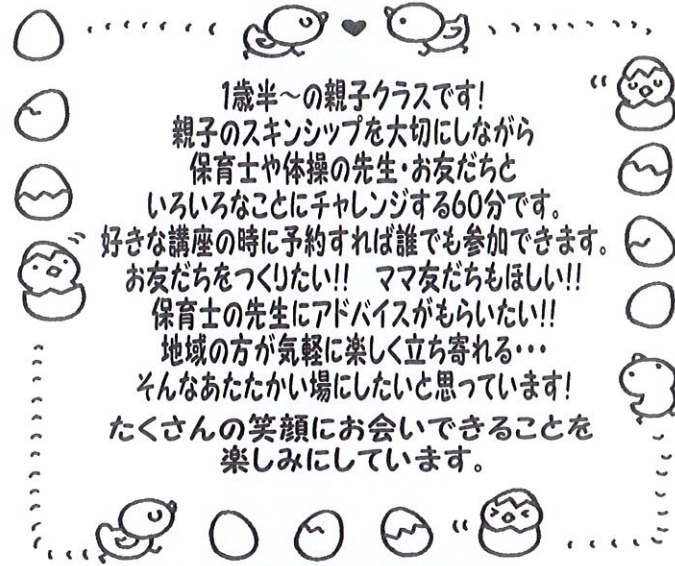 1歳半～の親子クラスです!
親子のスキンシップを大切にしながら
保育士や体操の先生・お友だちと
いろいろなことにチャレンジする60分です。
好きな講座の時に予約すれば誰でも参加できます。
お友だちをつくりたい!!　ママ友だちもほしい!!
保育士の先生にアドバイスがもらいたい!!
地域の方が気軽に楽しく立ち寄れる・・・
そんなあたたかい場にしたいと思っています!
たくさんの笑顔にお会いできることを
楽しみにしています。